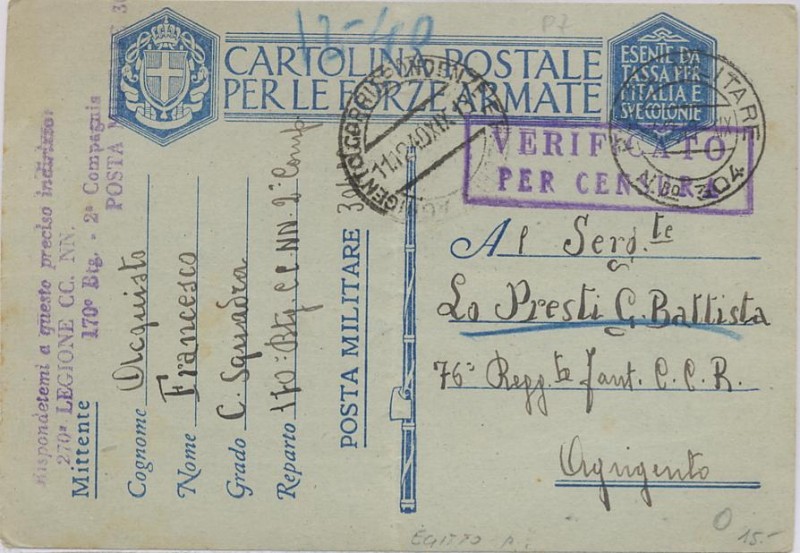 12-40
P7
CARTOLINA POSTALE
PER LE FORZE ARMATE
ESENTE DA
TASSA PER
L'ITALIA E
SVE COLONIE
AGRIGENTO CORRISPONDENZE
11.12.40.XIX
POSTA MILITARE
N.º 304
VERIFICATO
PER CENSURA
Rispondetemi a questo preciso indirizzo:
270ª LEGIONE CC. NN.
170º Btg. - 2ª Compagnia
POSTA
Mittente
Cognome Acquisto
Nome Francesco
Grado C. Squadra
Reparto 170º Btg. CC. NN. 2ª Comp
POSTA MILITARE 304
Al Serg.te
Lo Presti G. Battista
76º Regg.te Fant. C.C.R.
Agrigento
EGITTO
15.-